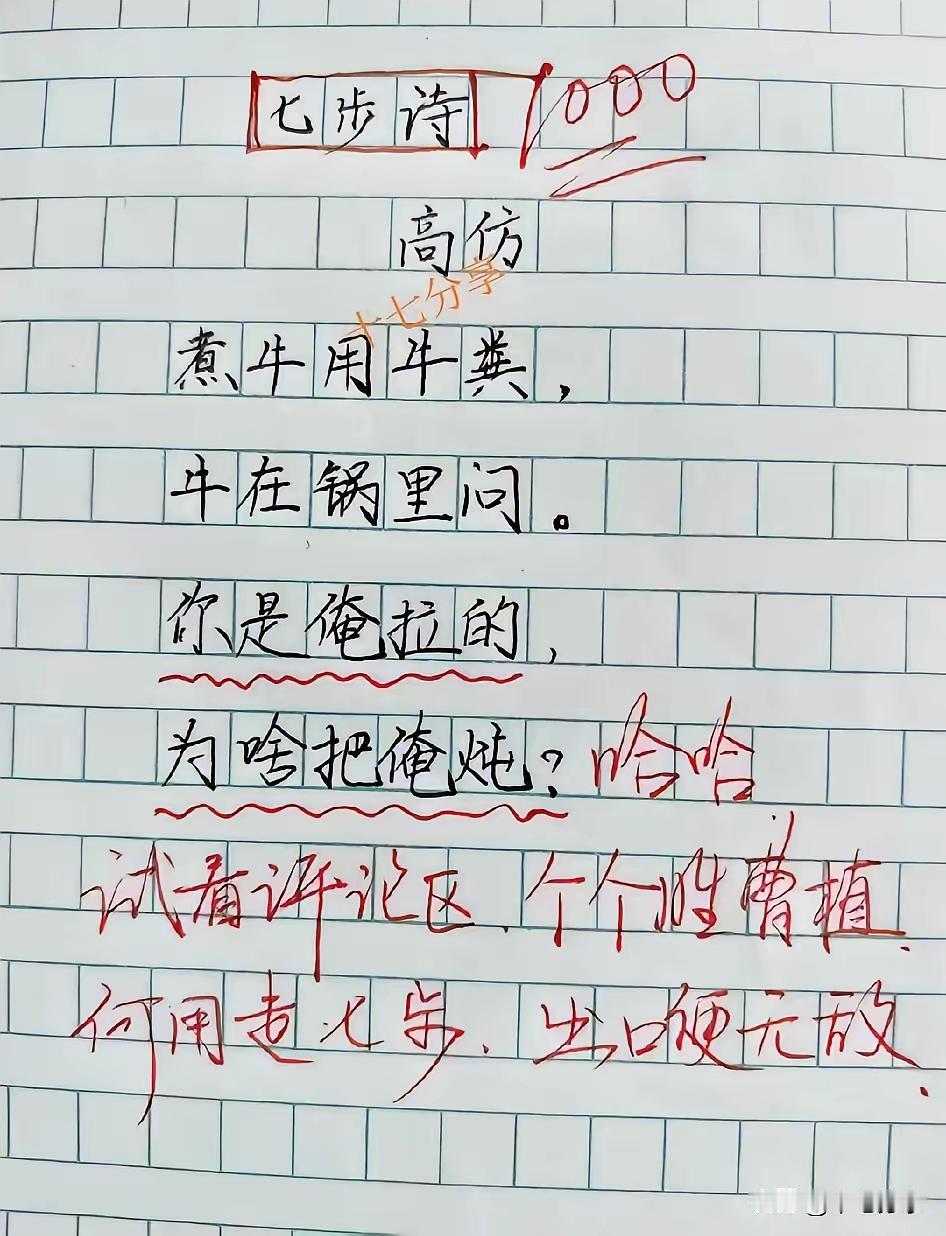 七步诗 1000
高仿
十七分享
煮牛用牛粪，
牛在锅里问。
你是俺拉的，
为啥把俺炖？哈哈
试看评论区、个个胜曹植、
何用走七步、出口便无敌.